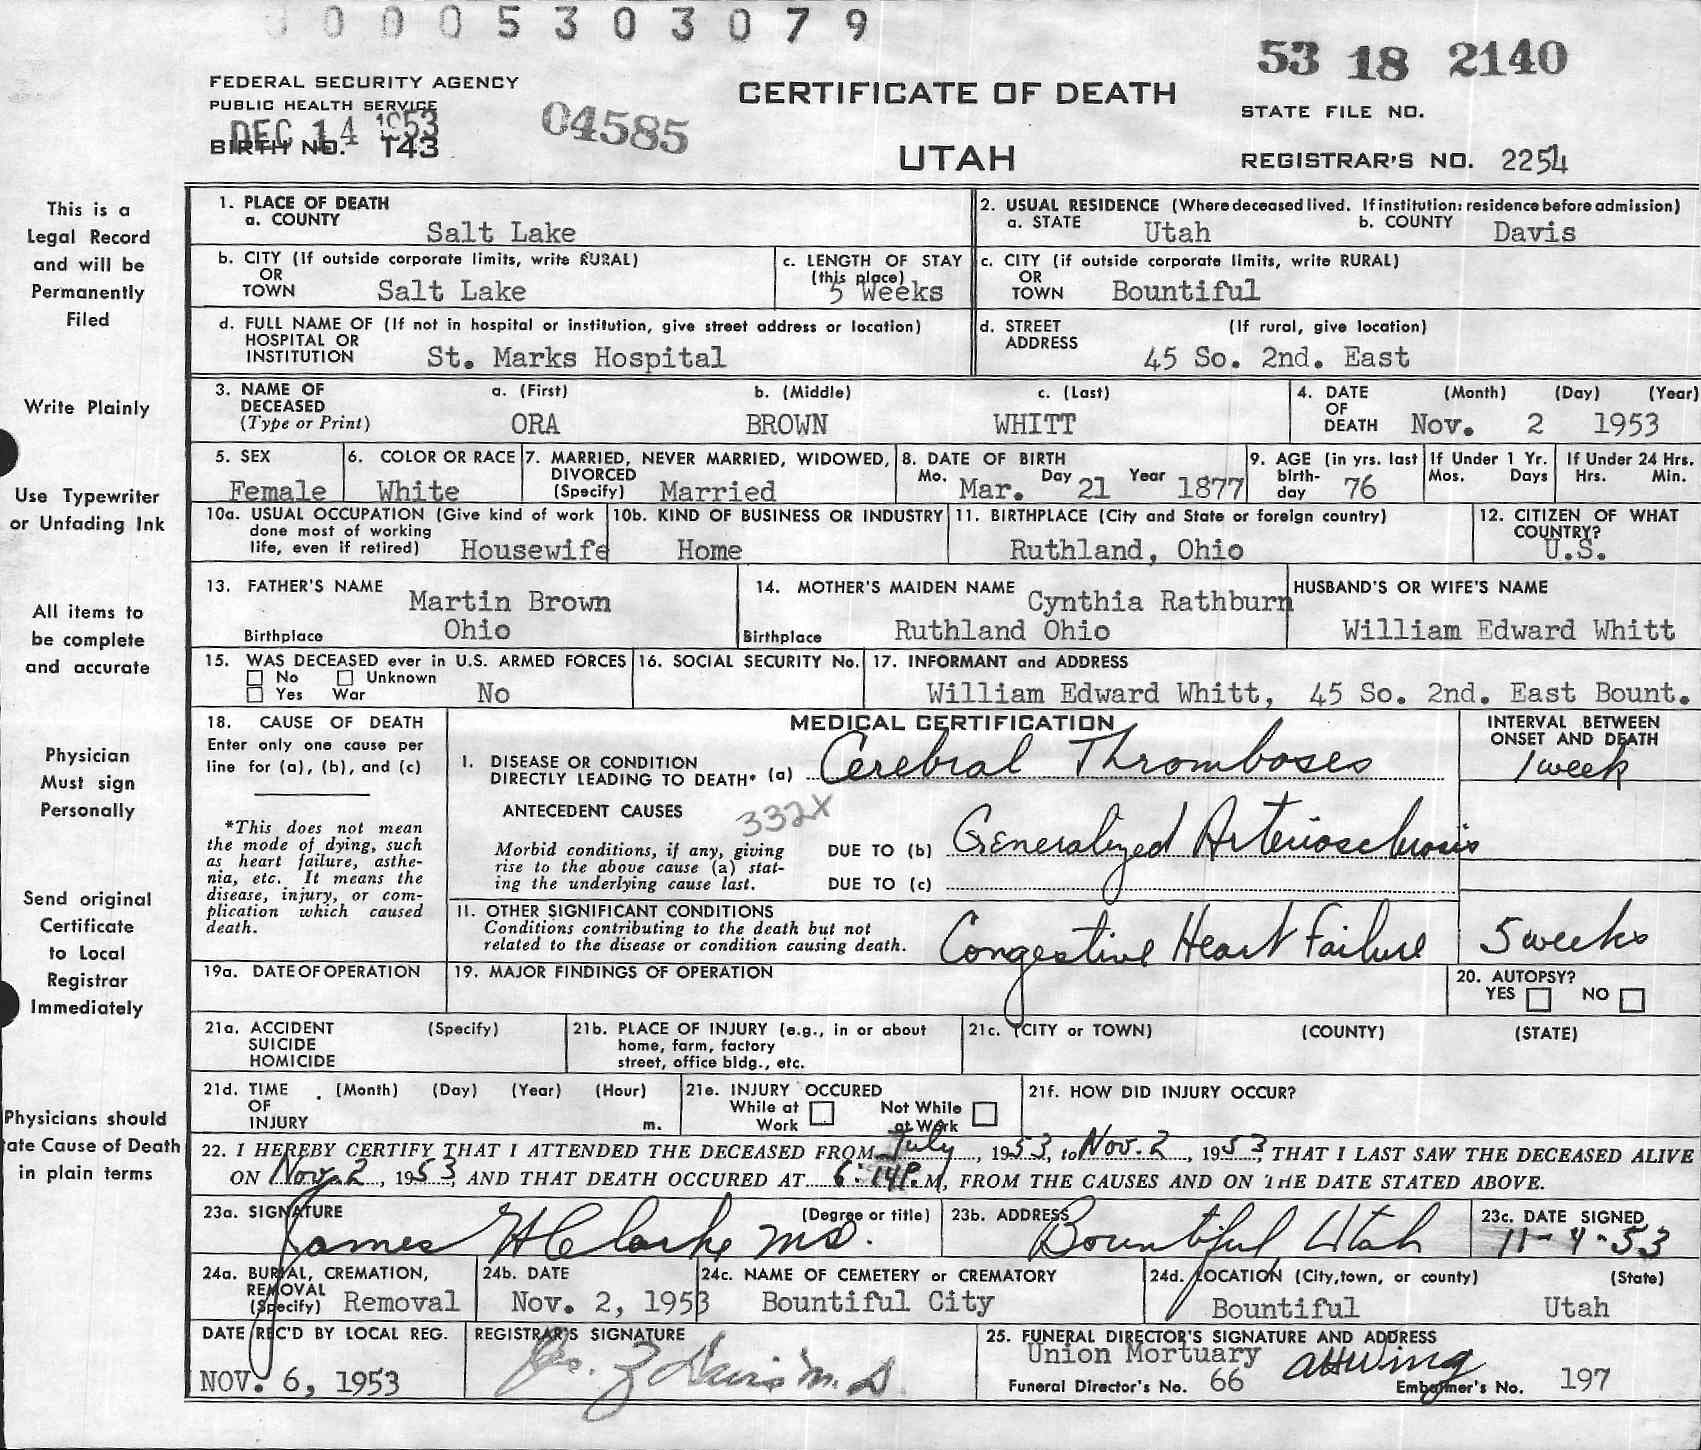 0 0 0 0 5 3 0 3 0 7 9
53 18 2140
FEDERAL SECURITY AGENCY
PUBLIC HEALTH SERVICE
DEC 14 1953
BIRTH NO. 143
04585
CERTIFICATE OF DEATH
UTAH
STATE FILE NO.
REGISTRAR'S NO. 2254
This is a
Legal Record
and will be
Permanently
Filed
Write Plainly
Use Typewriter
or Unfading Ink
All items to
be complete
and accurate
Physician
Must sign
Personally
Send original
Certificate
to Local
Registrar
Immediately
Physicians should
ate Cause of Death
in plain terms
1. PLACE OF DEATH
a. COUNTY Salt Lake
2. USUAL RESIDENCE (Where deceased lived. If institution: residence before admission)
a. STATE Utah b. COUNTY Davis
b. CITY (If outside corporate limits, write RURAL)
OR
TOWN Salt Lake
c. LENGTH OF STAY
(this place)
5 Weeks
c. CITY (if outside corporate limits, write RURAL)
OR
TOWN Bountiful
d. FULL NAME OF (If not in hospital or institution, give street address or location)
HOSPITAL OR
INSTITUTION St. Marks Hospital
d. STREET (If rural, give location)
ADDRESS
45 So. 2nd. East
3. NAME OF a. (First) b. (Middle) c. (Last)
DECEASED
(Type or Print) ORA BROWN WHITT
4. DATE (Month) (Day) (Year)
OF
DEATH Nov. 2 1953
5. SEX
Female
6. COLOR OR RACE
White
7. MARRIED, NEVER MARRIED, WIDOWED,
DIVORCED
(Specify) Married
8. DATE OF BIRTH
Mo. Mar. Day 21 Year 1877
9. AGE (in yrs. last
birth-
day 76
If Under 1 Yr.
Mos. Days
If Under 24 Hrs.
Hrs. Min.
10a. USUAL OCCUPATION (Give kind of work
done most of working
life, even if retired) Housewife
10b. KIND OF BUSINESS OR INDUSTRY
Home
11. BIRTHPLACE (City and State or foreign country)
Ruthland, Ohio
12. CITIZEN OF WHAT
COUNTRY?
U.S.
13. FATHER'S NAME
Martin Brown
Birthplace Ohio
14. MOTHER'S MAIDEN NAME Cynthia Rathburn
Birthplace Ruthland Ohio
HUSBAND'S OR WIFE'S NAME
William Edward Whitt
15. WAS DECEASED ever in U.S. ARMED FORCES
No Unknown
Yes War No
16. SOCIAL SECURITY No.
17. INFORMANT and ADDRESS
William Edward Whitt, 45 So. 2nd. East Bount.
18. CAUSE OF DEATH
Enter only one cause per
line for (a), (b), and (c)
*This does not mean
the mode of dying, such
as heart failure, asthe-
nia, etc. It means the
disease, injury, or com-
plication which caused
death.
MEDICAL CERTIFICATION
INTERVAL BETWEEN
ONSET AND DEATH
I. DISEASE OR CONDITION
DIRECTLY LEADING TO DEATH* (a) Cerebral Thromboses 1 week
ANTECEDENT CAUSES 332X
Morbid conditions, if any, giving
rise to the above cause (a) stat-
ing the underlying cause last.
DUE TO (b) Generalized Arteriosclerosis
DUE TO (c)
11. OTHER SIGNIFICANT CONDITIONS
Conditions contributing to the death but not
related to the disease or condition causing death. Congestive Heart Failure 5 weeks
19a. DATE OF OPERATION
19. MAJOR FINDINGS OF OPERATION
20. AUTOPSY?
YES NO
21a. ACCIDENT (Specify)
SUICIDE
HOMICIDE
21b. PLACE OF INJURY (e.g., in or about
home, farm, factory
street, office bldg., etc.
21c. (CITY or TOWN) (COUNTY) (STATE)
21d. TIME (Month) (Day) (Year) (Hour)
OF
INJURY m.
21e. INJURY OCCURED
While at Not While
Work at Work
21f. HOW DID INJURY OCCUR?
22. I HEREBY CERTIFY THAT I ATTENDED THE DECEASED FROM July, 1953, to Nov. 2, 1953, THAT I LAST SAW THE DECEASED ALIVE
ON Nov. 2, 1953, AND THAT DEATH OCCURED AT 6:14P.M, FROM THE CAUSES AND ON THE DATE STATED ABOVE.
23a. SIGNATURE (Degree or title)
James H Clarke MD.
23b. ADDRESS
Bountiful, Utah
23c. DATE SIGNED
11-4-53
24a. BURIAL, CREMATION,
REMOVAL
(Specify) Removal
24b. DATE
Nov. 2, 1953
24c. NAME OF CEMETERY or CREMATORY
Bountiful City
24d. LOCATION (City, town, or county) (State)
Bountiful Utah
DATE REC'D BY LOCAL REG.
NOV. 6, 1953
REGISTRAR'S SIGNATURE
M.D.
25. FUNERAL DIRECTOR'S SIGNATURE AND ADDRESS
Union Mortuary
Funeral Director's No. 66 Embalmer's No. 197